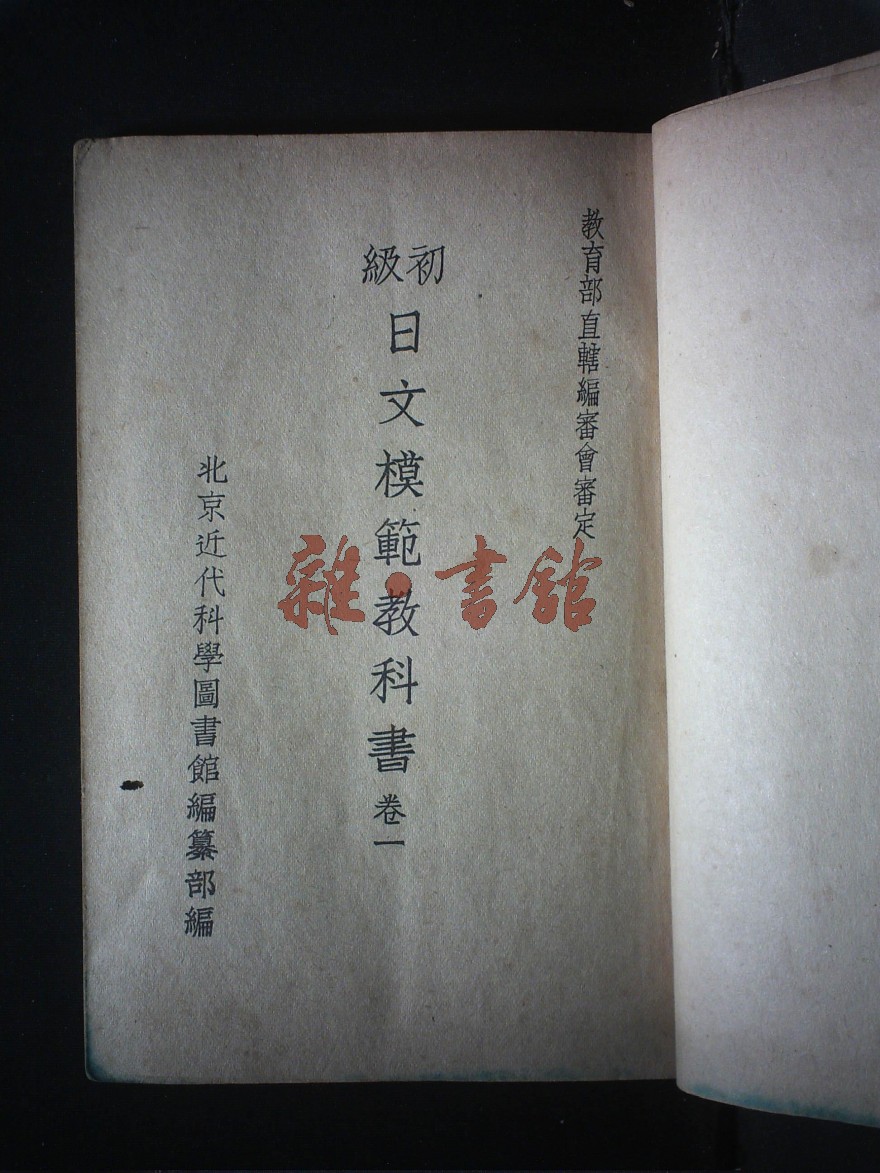 教育部直轄編審會審定
初級
日文模範教科書卷一
北京近代科學圖書館編纂部編
雜·書館